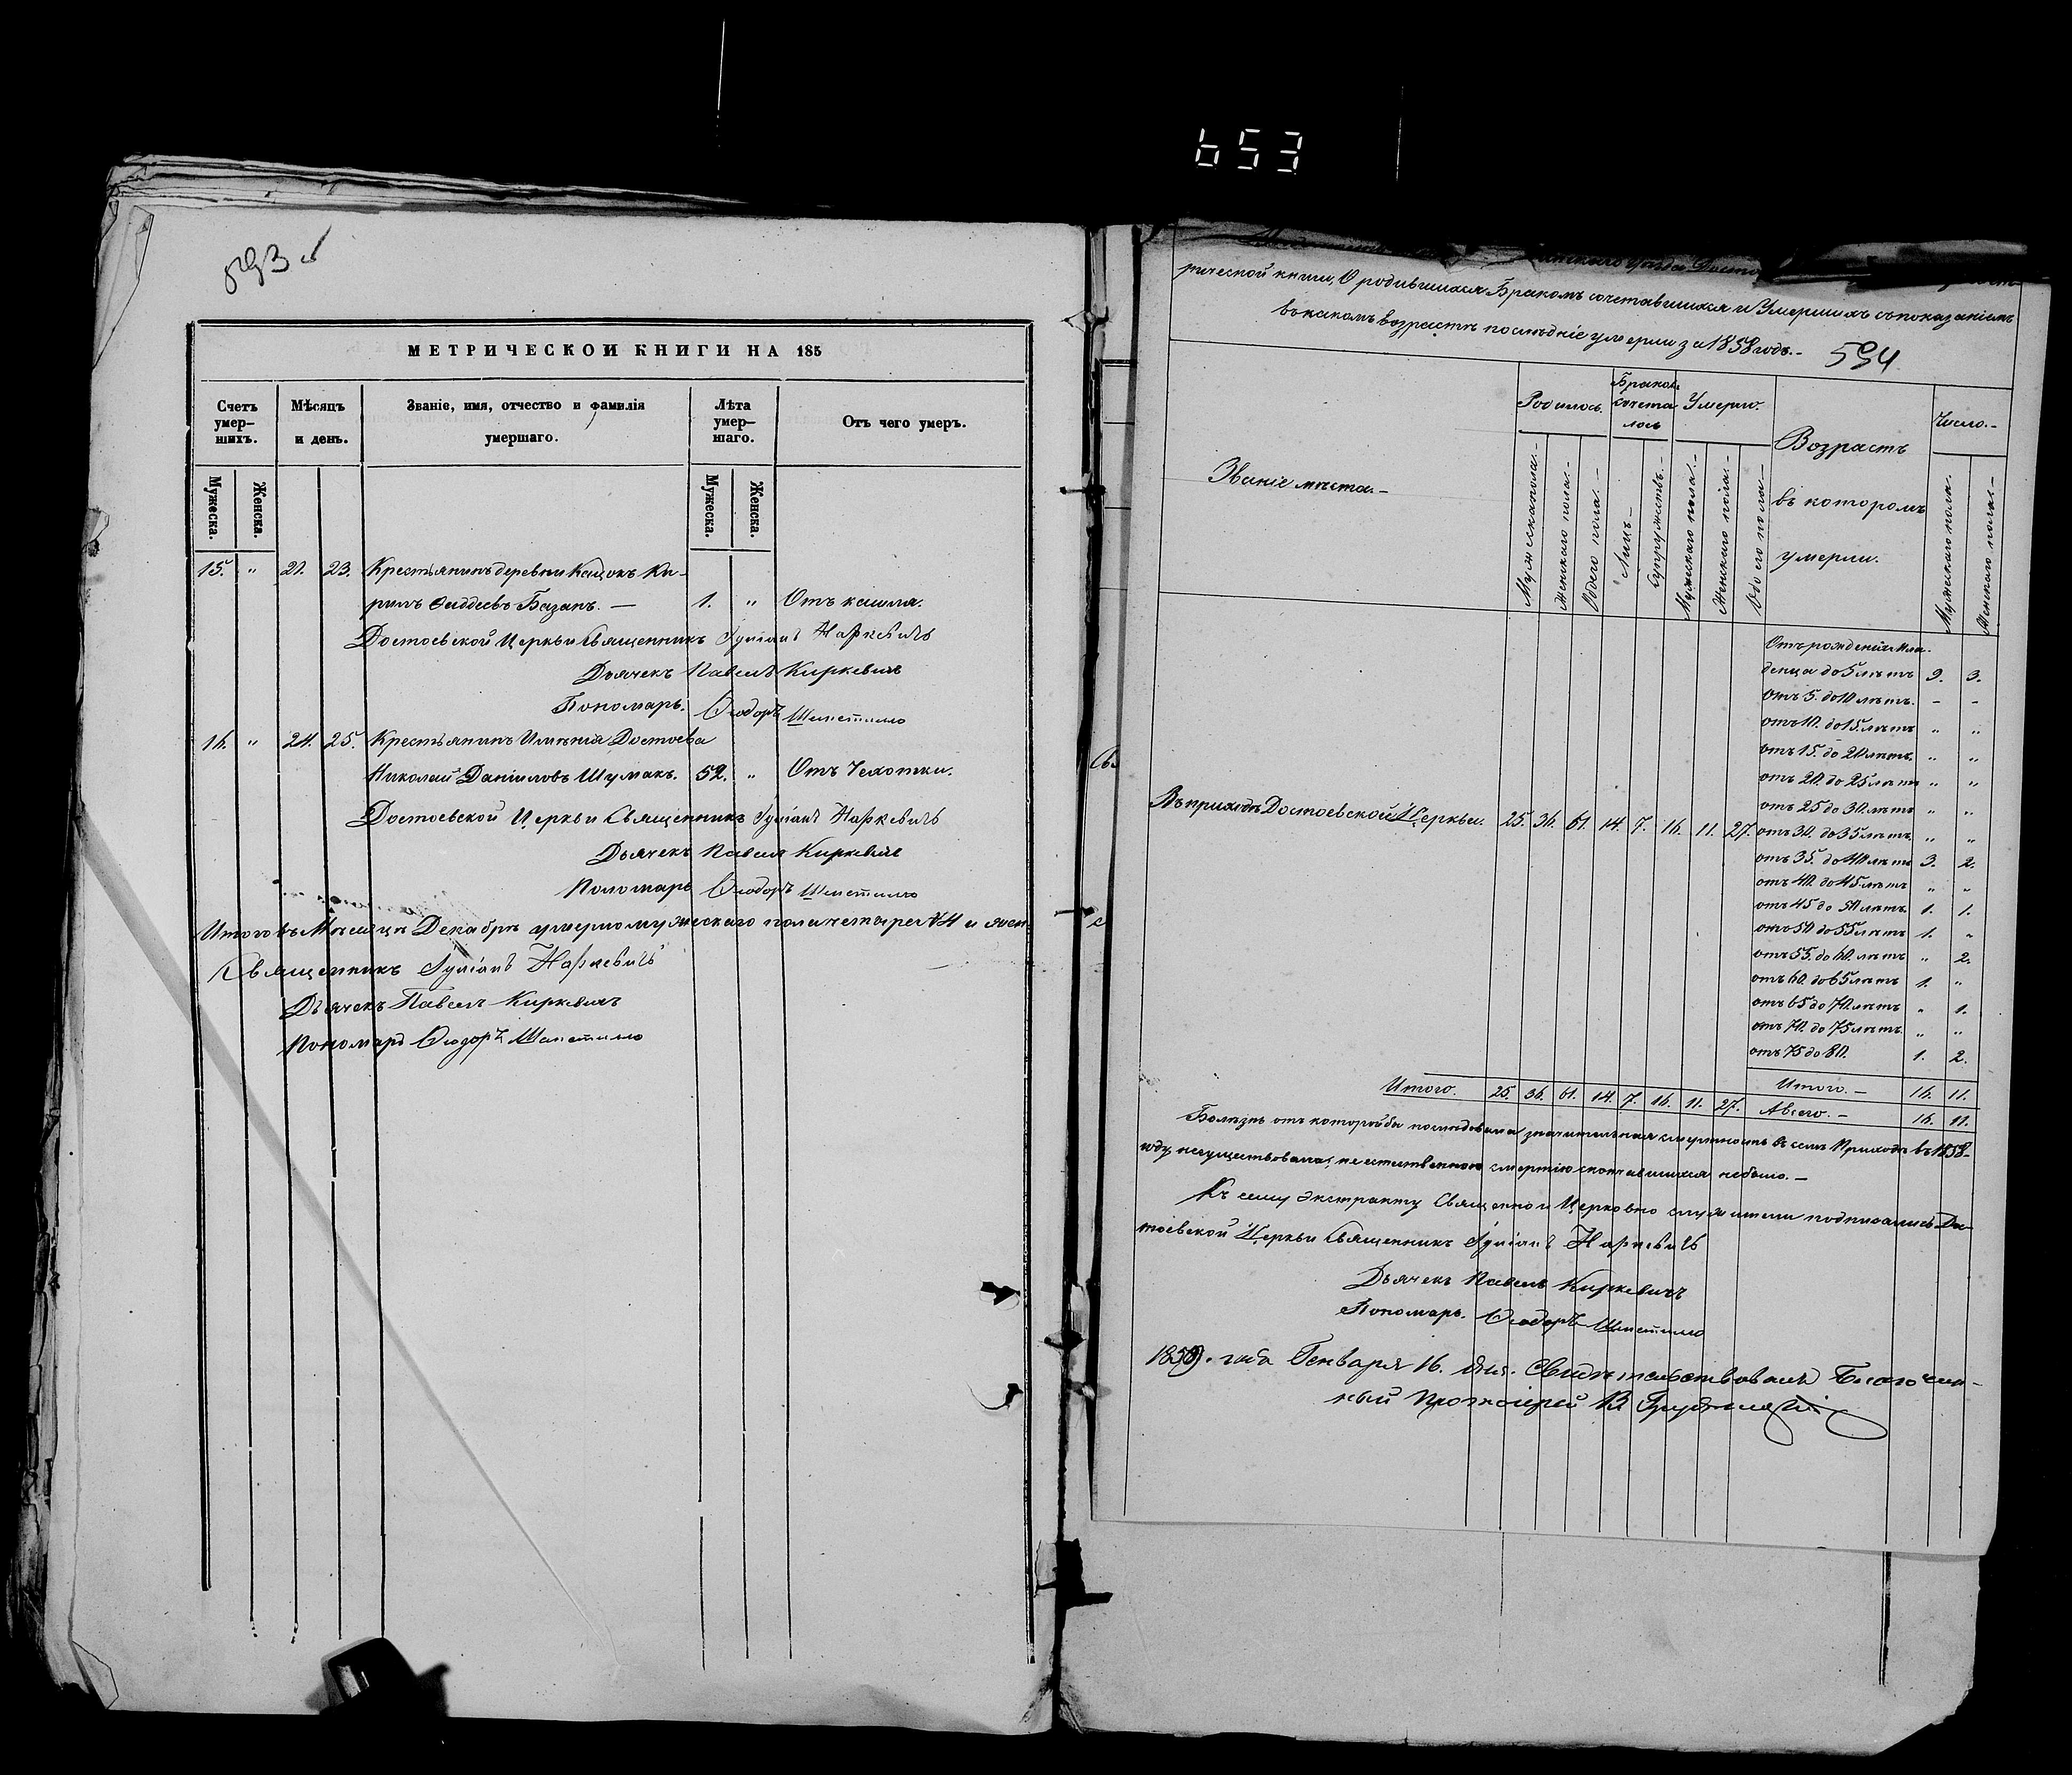 653
593 об
МЕТРИЧЕСКОЙ КНИГИ НА 185
Счетъ умер-шихъ.
Мѣсяцъ и день.
Званіе, имя, отчество и фамилія умершаго.
Лѣта умер-шаго.
Отъ чего умеръ.
Мужеска. Женска. Мужеска. Женска.
15. " 21. 23. Крестьянинъ деревни Кацокъ Ки-
рилъ Фаддеевъ Базанъ. — 1. " Отъ кашля.
Достоевской Церкви Священникъ Іуліанъ Наркевичъ
Дьячекъ Павелъ Киркевичъ
Пономарь. Ѳеодоръ Шеметилло
16. " 24. 25. Крестьянинъ Имѣнія Достоева
Николай Даніиловъ Шумакъ. 52. " Отъ Чахотки.
Достоевской Церкви Священникъ Іуліанъ Наркевичъ
Дьячекъ Павелъ Киркевичъ
Пономарь Ѳеодоръ Шеметилло
Итого въ Мѣсяцѣ Декабрѣ умерло мужескаго пола четыре 4 и жен
Священникъ Іуліанъ Наркевичъ
Дьячекъ Павелъ Киркевичъ
Пономарь Ѳеодоръ Шеметилло
уѣзда Досто
рической книги, О родившихся Бракомъ сочетавшихся и Умершихъ съ показаніемъ
въ какомъ возрастѣ послѣдніе умерли за 1858 годъ. -
594
Званіе мѣста. -
Родилось.
Бракомъ сочета лось
Умерло.
Возрастъ въ которомъ умерли.
Число. -
Мужескаго пола. -
Женскаго пола. -
Обоего пола. -
Лицъ -
Супружествъ. -
Мужескаго пола. -
Женскаго пола. -
Обоего пола -
Мужескаго пола.
Женскаго пола. -
Отъ рожденія мла-
денца до 5 лѣтъ 9. 3.
отъ 5. до 10 лѣтъ. - -
отъ 10. до 15. лѣтъ " "
отъ 15. до 20 лѣтъ. " "
отъ 20. до 25 лѣтъ " "
отъ 25 до 30. лѣтъ " "
Въ приходѣ Достоевской Церкви. 25. 36. 61. 14. 7. 16. 11. 27. отъ 30. до 35 лѣтъ. " "
отъ 35. до 40 лѣтъ 3. 2.
отъ 40. до 45 лѣтъ " "
отъ 45 до 50 лѣтъ. 1. 1.
отъ 50 до 55 лѣтъ 1. "
отъ 55. до 60. лѣтъ " 2.
отъ 60. до 65 лѣтъ 1. "
отъ 65 до 70. лѣтъ " 1.
отъ 70. до 75 лѣтъ. " "
отъ 75 до 80. 1. 2.
Итого. 25. 36. 61. 14. 7. 16. 11. 27. Итого. — 16. 11.
А всего. — 16. 11.
Болѣзнь отъ которой бы послѣдовала значительная смертность въ семъ Приходѣ въ 1858-
году не существовала, не естественною смертію скончавшихся небыло. —
Къ сему экстракту Священно и Церковно служители подписались До-
стоевской Церкви Священникъ Іуліанъ Наркевичъ
Дьячекъ Павелъ Киркевичъ
Пономарь. Ѳеодоръ Шеметилло
1859. года Генваря 16. дня. Свидѣтельствовалъ Благочин-
ный Протоіерей